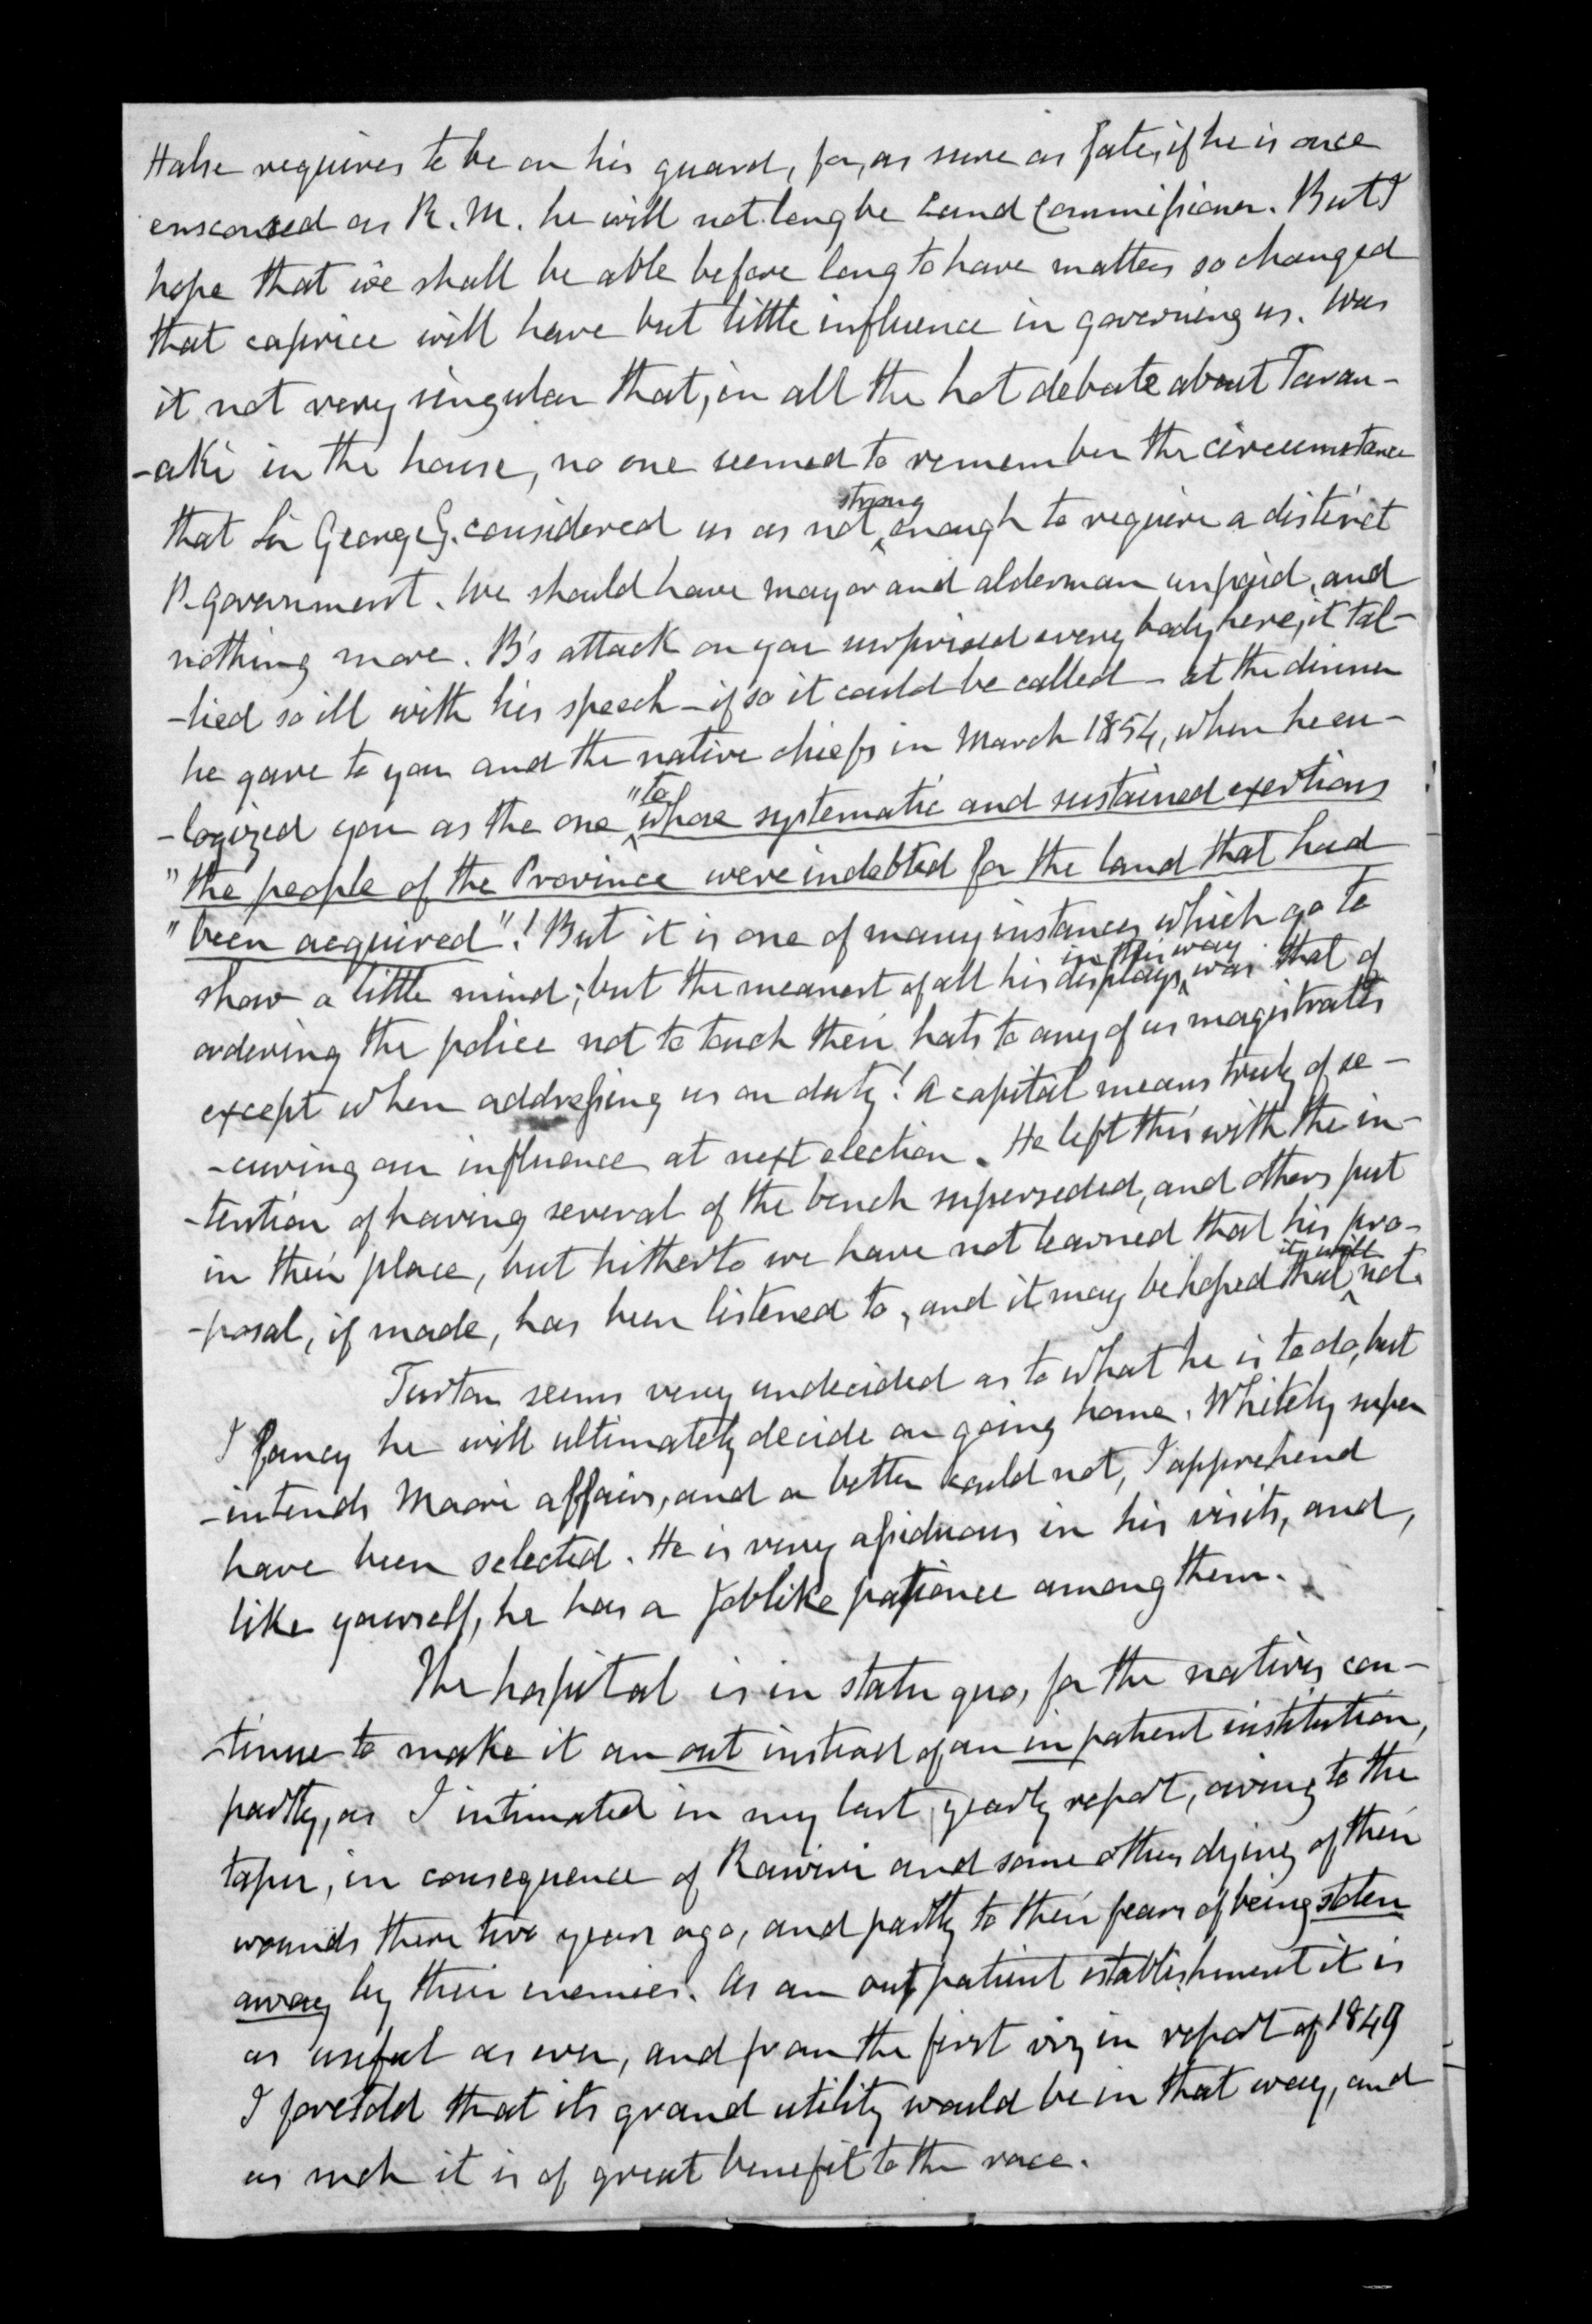 Halse requires to be on his guard, for, as sure as fate, if he is once
ensconsed as R. M. he will not long be Land Commissioner. But I
hope that we shall be able before long to have matters so changed
that caprice will have but little influence in governing us. Was
it not very singular that, in all the hot debate about Taran-
-aki in the house, no one seemed to remember the circumstance
that Sir George G. considered us as not strong enough to require a distinct
P. government. We should have mayor and alderman unpaid, and
nothing more. B's attack on you surprised every body here, it tal-
-lied so ill with his speech - if so it could be called - at the dinner
he gave to you and the native chiefs in March 1854, when he eu-
-logized you as the one "to whose systematic and sustained exertions
"the people of the Province were indebted for the land that had
"been acquired"! But it is one of many instances which go to
show a little mind; but the meanest of all his displays in this way was that of
ordering the police not to touch their hats to any of us magistrates
except when addressing us on duty! A capital means truly of se-
-curing our influence at next election. He left this with the in-
-tention of having several of the bench superseded, and others put
in their place, but hitherto we have not learned that his pro-
-posal, if made, has been listened to, and it may be hoped that it will not.
Turton seems very undecided as to what he is to do, but
I fancy he will ultimately decide on going home. Whitely super
-intends Maori affairs, and a better could not, I apprehend
have been selected. He is very assiduous in his visits, and,
like yourself, he has a Joblike patience among them.
The hospital is in statu quo, for the natives con-
-tinue to make it an out instead of an in patient institution,
partly, as I intimated in my last yearly report, owing to the
tapu, in consequence of Rawiri and some others dying of their
wounds there two years ago, and partly to their fears of being stolen
away by their enemies. As an out patient establishment it is
as useful as ever, and from the first viz in report of 1849
I foretold that its grand utility would be in that way, and
as such it is of great benefit to the race.